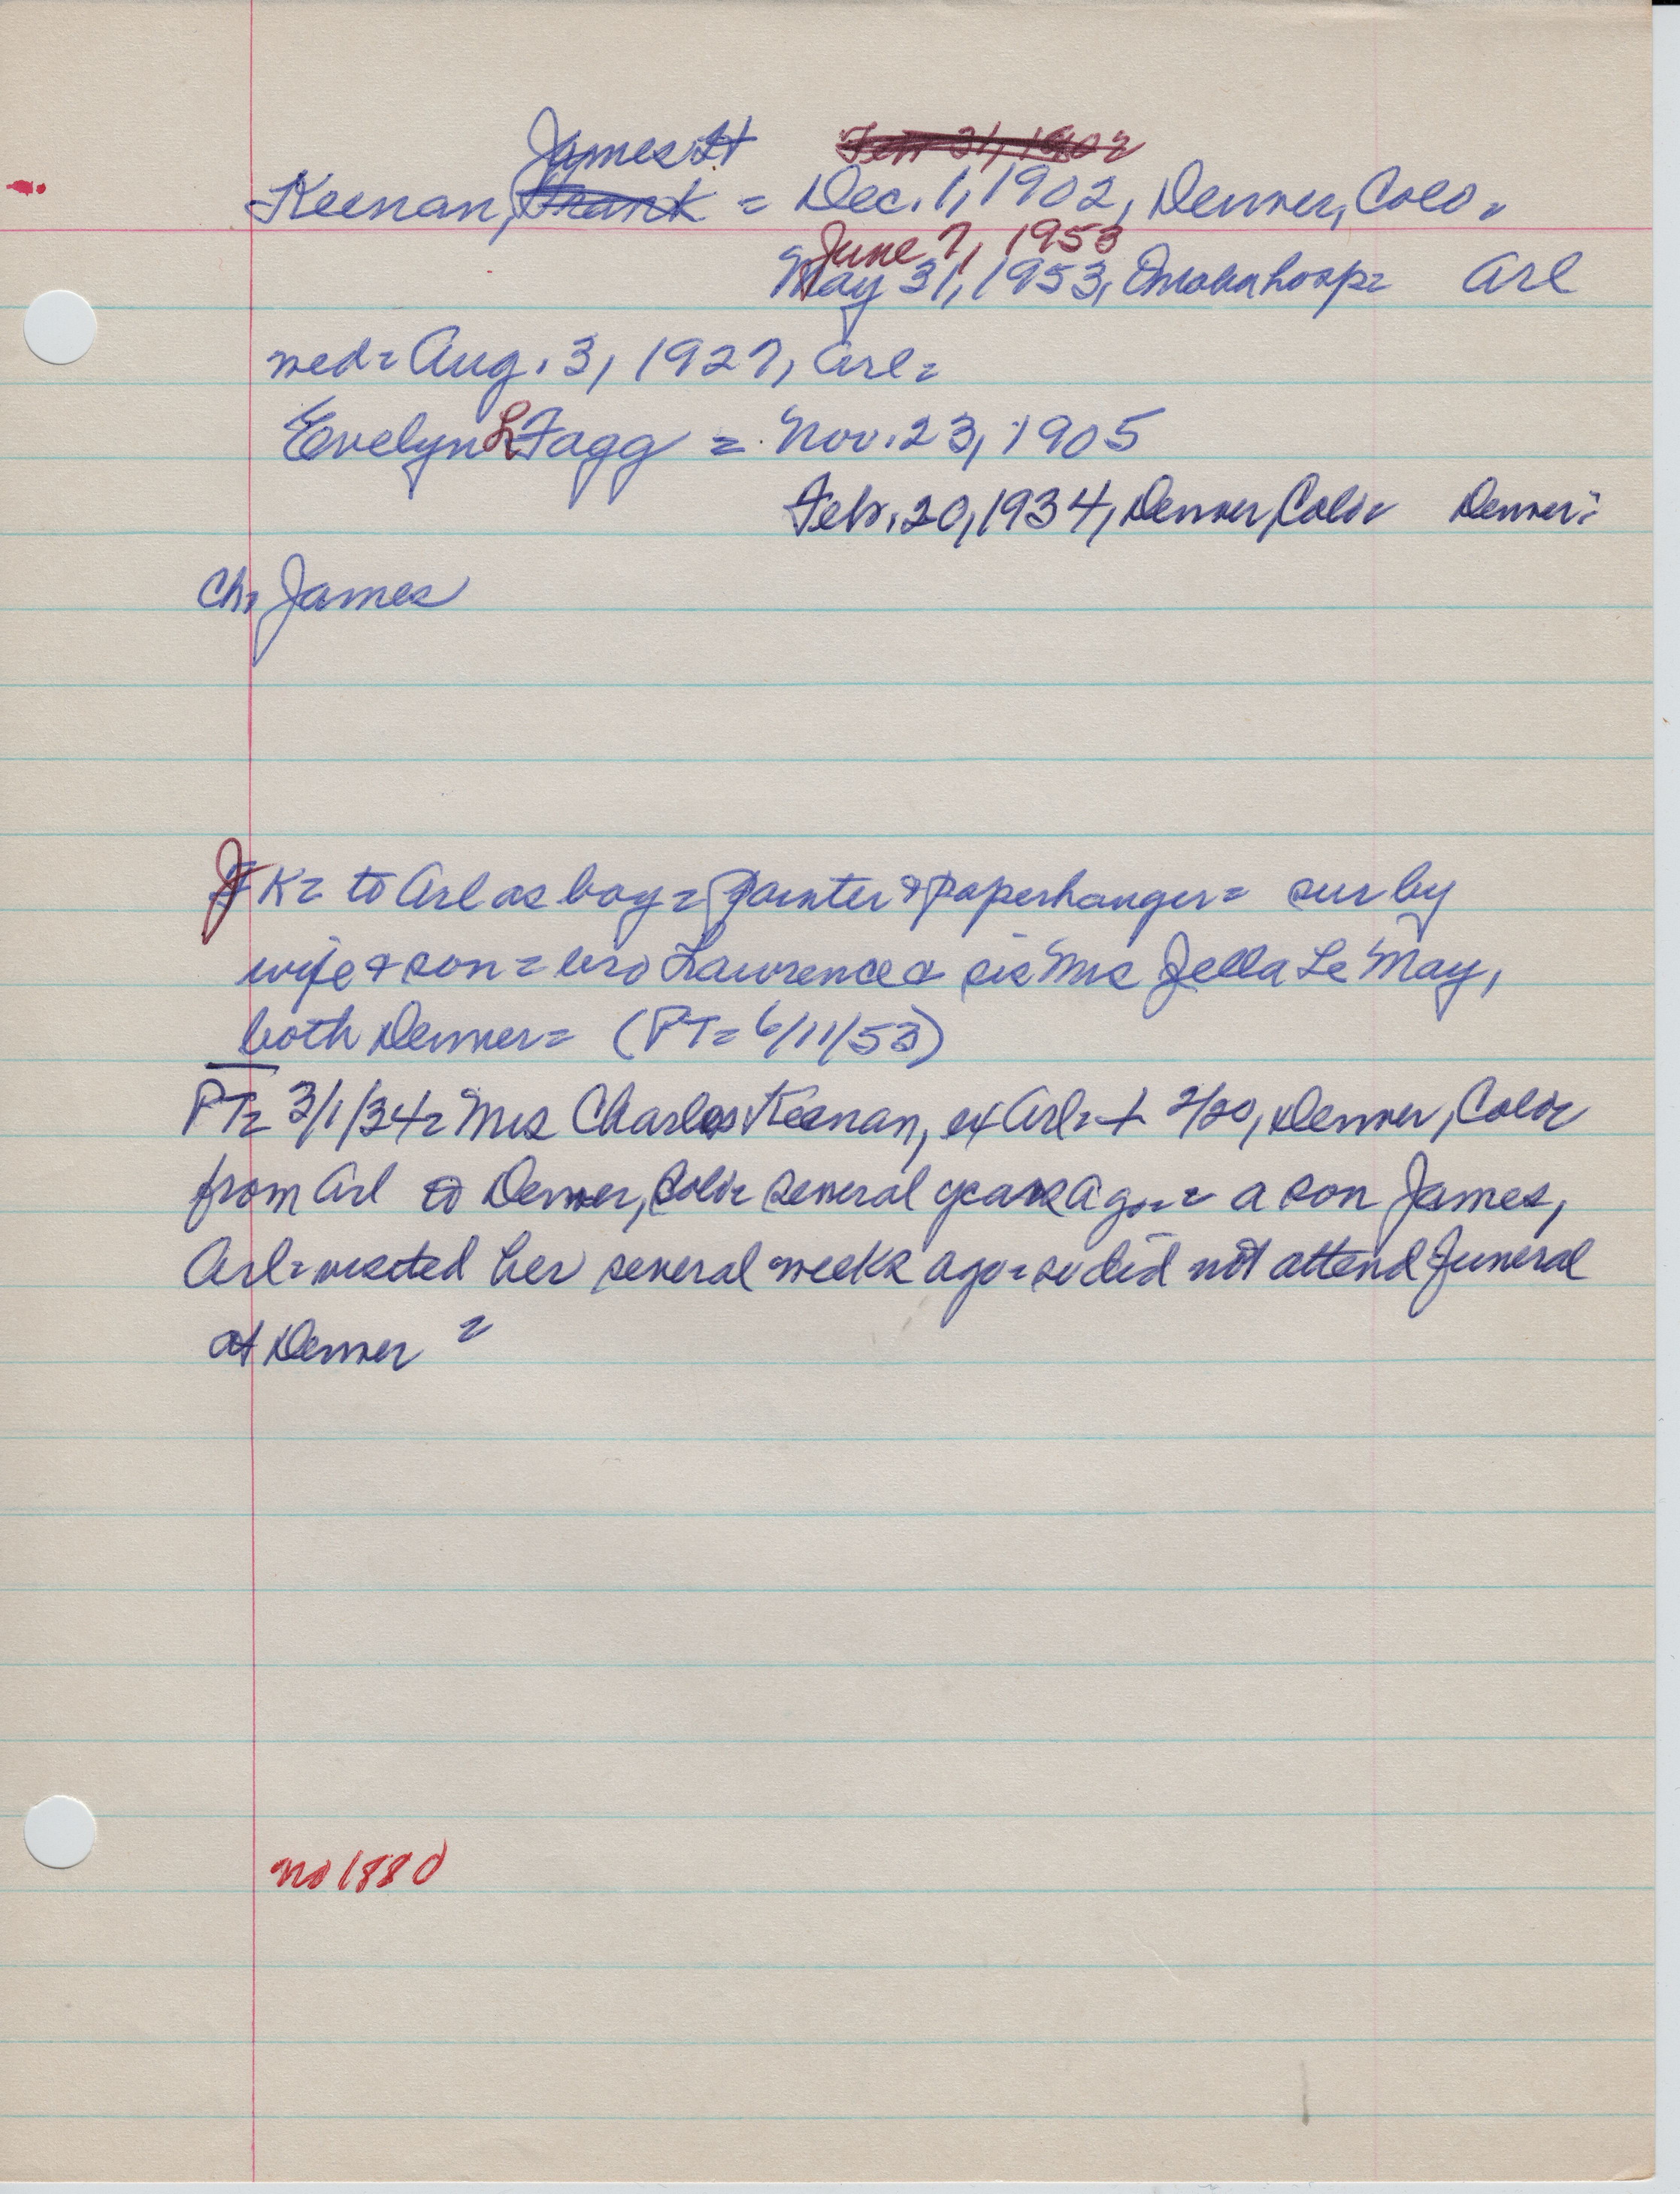 James H
Keenan, Frank = Dec. 1, 1902, Denver, Colo.
June 7, 1953
May 31, 1953, Omaha hosp= Arl
wed= Aug. 3, 1927, Arl=
Evelyn L Fagg = Nov. 23, 1905
Feb. 20, 1934, Denver, Colo= Denver=
Ch= James
JK= to Arl as boy= painter & paperhanger= sur by
wife & son= bro Lawrence & sis Mrs Jella Le May,
both Denver= (PT= 6/11/53)
PT= 3/1/34= Mrs Charles Keenan, ex Arl= + 2/20, Denver, Colo=
from Arl to Denver, Colo= several years ago= a son James,
Arl= visited her several weeks ago= so did not attend funeral
at Denver =
no 1880